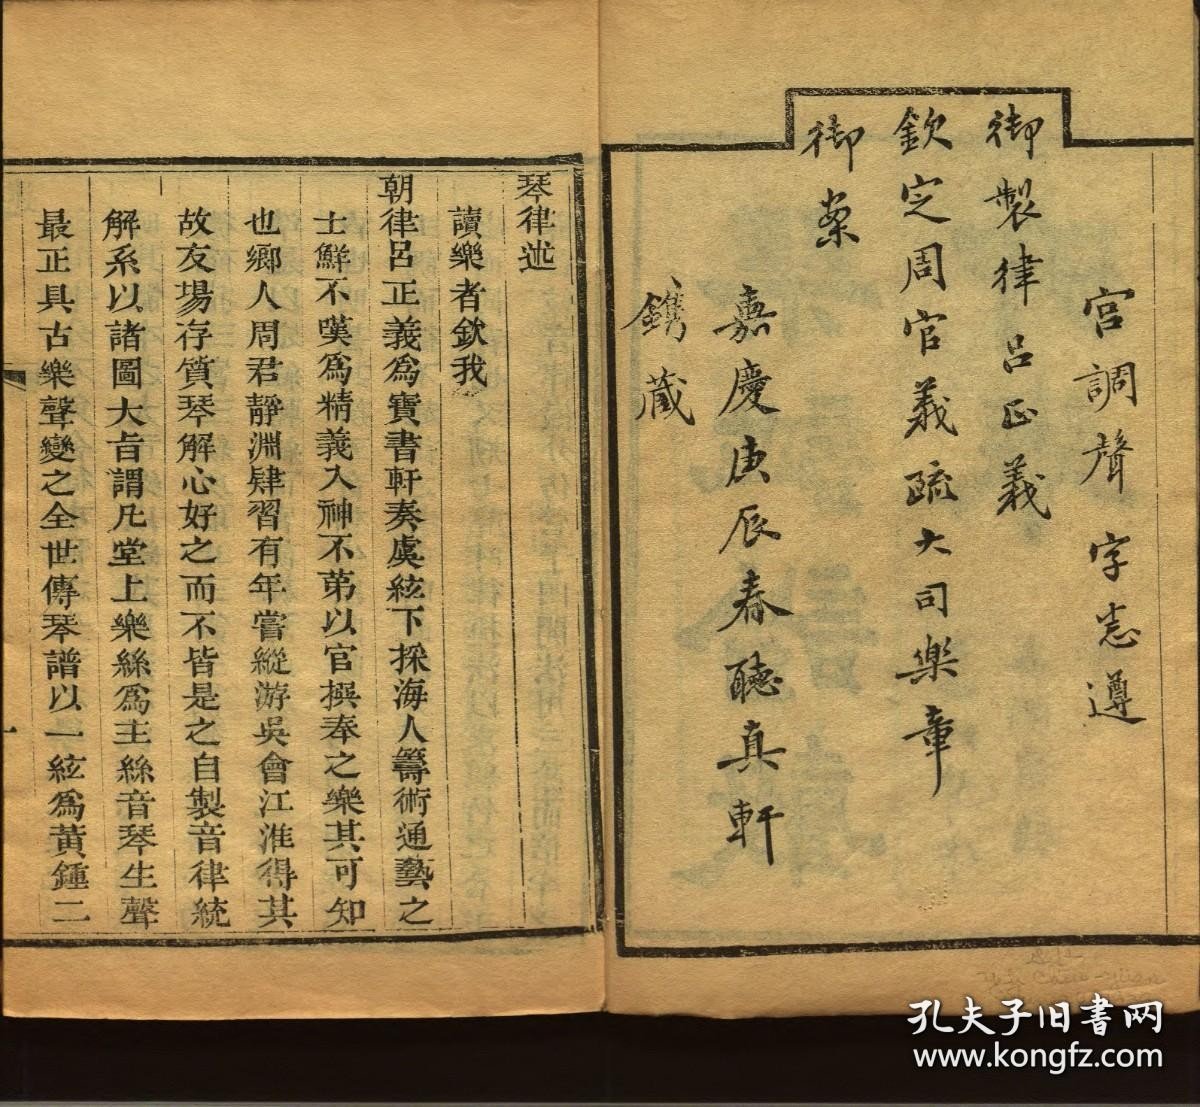 宮調聲字悉遵
御製律呂正義
欽定周官義疏大司樂章
御案
嘉慶庚辰春聽真軒
鐫藏
琴律述
讀樂者欽我
朝律呂正義為寶書軒奏虞絃下採海人籌術通藝之
士鮮不嘆為精義入神不第以官撰奉之樂其可知
也鄉人周君靜淵肄習有年嘗縱游吳會江淮得其
故友場存質琴解心好之而不皆是之自製音律統
解系以諸圖大旨謂凡堂上樂絲為主絲音琴生聲
最正具古樂聲變之全世傳琴譜以一絃為黃鍾二
一
孔夫子旧书网
www.kongfz.com